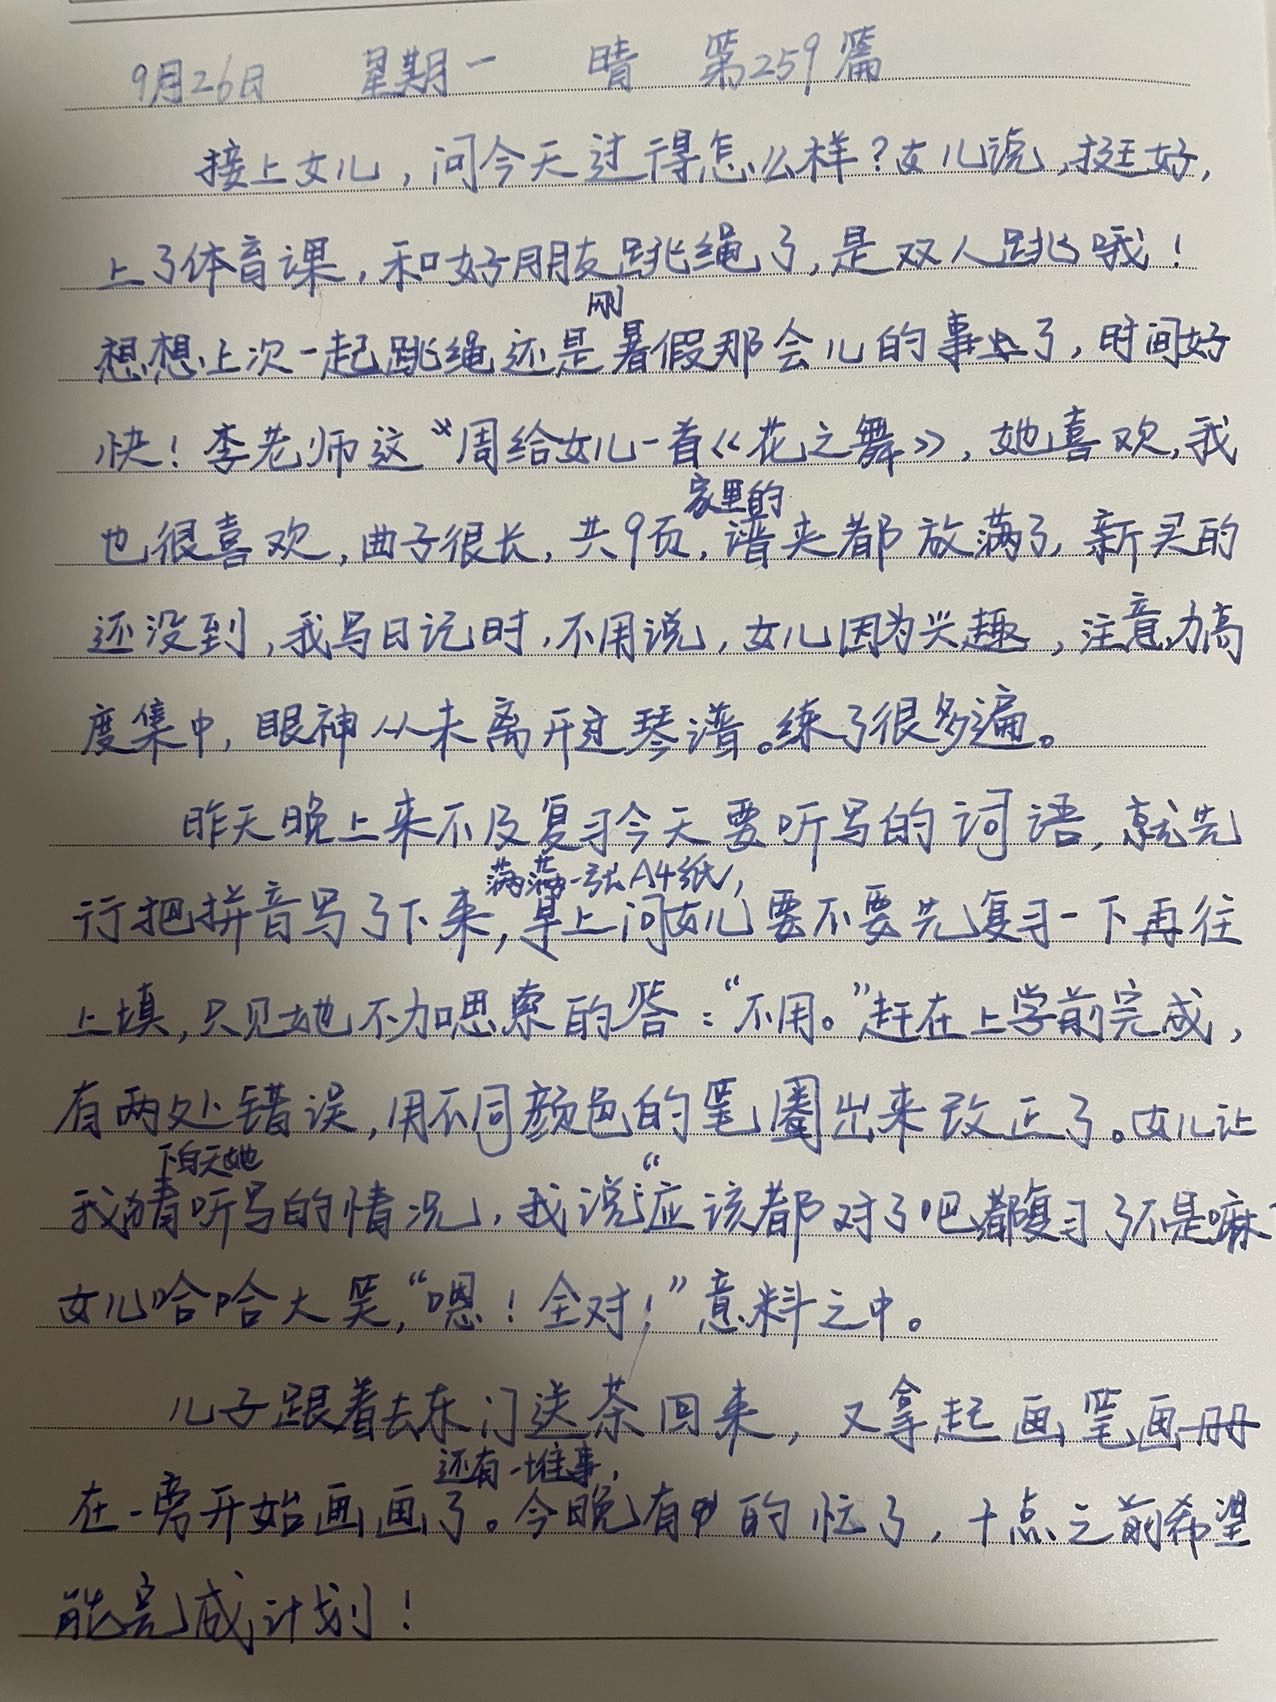 9月26日 星期一 晴 第259篇
接上女儿，问今天过得怎么样？女儿说，挺好，
上了体育课，和好朋友跳绳了，是双人跳哦！
刚
想想上次一起跳绳还是暑假那会儿的事了，时间好
快！李老师这周给女儿一首《花之舞》，她喜欢，我
家里的
也很喜欢，曲子很长，共9页，谱夹都放满了，新买的
还没到，我写日记时，不用说，女儿因为兴趣，注意力高
度集中，眼神从未离开过琴谱。练了很多遍。
昨天晚上来不及复习今天要听写的词语，就先
满满一张A4纸，
行把拼音写了下来，早上问女儿要不要先复习一下再往
上填，只见她不加思索的答：“不用。”赶在上学前完成，
有两处错误，用不同颜色的笔圈出来改正了。女儿让
下白天她
我猜听写的情况，我说“应该都对了吧都复习了不是嘛
女儿哈哈大笑，“嗯！全对！”意料之中。
儿子跟着去东门送茶回来，又拿起画笔画册
还有一堆事，
在一旁开始画画了。今晚有的忙了，十点之前希望
能完成计划！